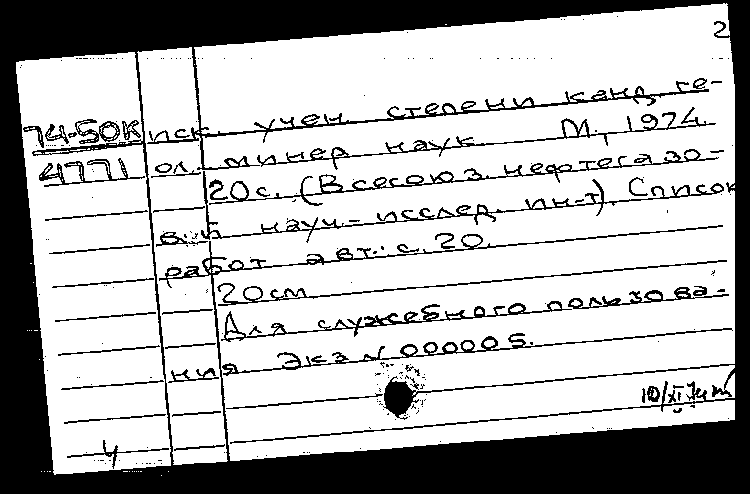 2
74-50К иск. учен. степени канд. ге-
4771 ол.-минер наук. М., 1974.
20 с. (Всесоюз. нефтегазо-
вый науч.-исслед. ин-т). Список
работ авт.: с. 20.
20см
Для служебного пользова-
ния Экз N 000005.
10/XI 74
4